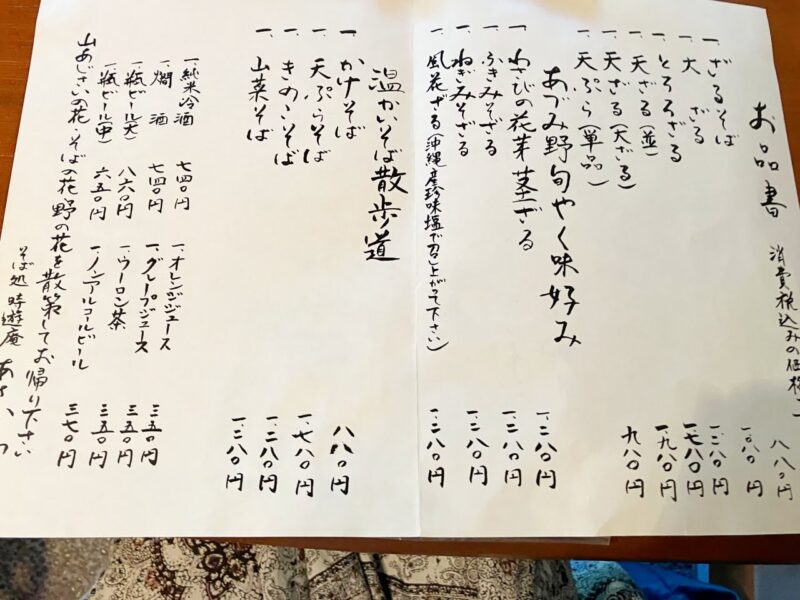 お品書 消費税込みの価格
一、ざるそば 八八〇円
一、大ざる 一、〇八〇円
一、とろろざる 一、二八〇円
一、天ざる(並) 一、七八〇円
一、天ざる(天ざる) 一、九八〇円
一、天ぷら(単品) 九八〇円
あづみ野旬やく味好み
一、わさびの花芽茎ざる 一、二八〇円
一、ふきみそざる 一、二八〇円
一、ねぎみそざる 一、二八〇円
一、風花ざる(沖縄産珍味塩で召し上がって下さい) 一、二八〇円
温かいそば散歩道
一、かけそば 八八〇円
一、天ぷらそば 一、七八〇円
一、きのこそば 一、二八〇円
一、山菜そば 一、二八〇円
一、純米冷酒 七四〇円
一、燗酒 七四〇円
一、瓶ビール(大) 八六〇円
一、瓶ビール(中) 六五〇円
一、オレンジジュース 三五〇円
一、グレープジュース 三五〇円
一、ウーロン茶 三五〇円
一、ノンアルコールビール 三七〇円
山あじさいの花・そばの花野の花を散策してお帰り下さい
そば処 時遊庵